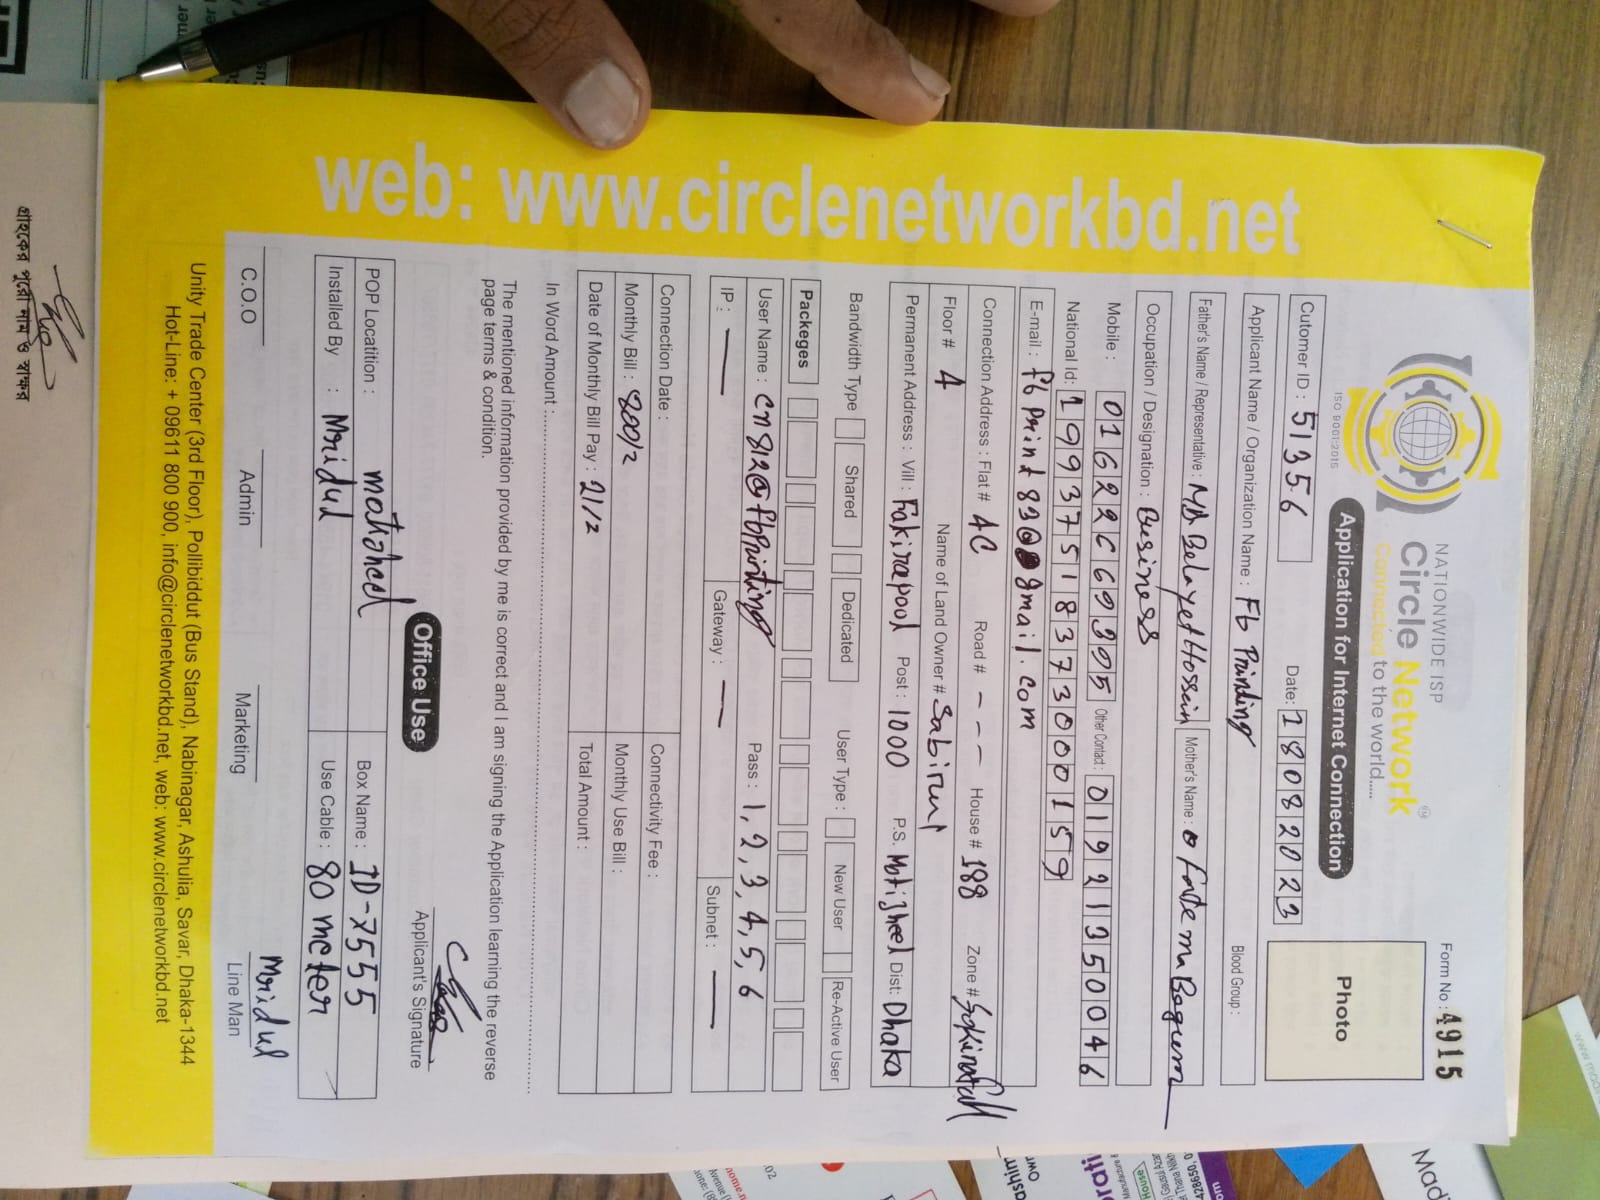 web: www.circlenetworkbd.net
NATIONWIDE ISP
Circle Network
Connected to the world.....
ISO 9001:2015
Form No : 4915
Application for Internet Connection
Photo
Cutomer ID : 51356 Date: 18082023
Applicant Name / Organization Name : Fb Printing Blood Group :
Father's Name / Representative : MD Belayet Hossin Mother's Name : Begum
Occupation / Designation : Business
Mobile : 01622669305 Other Contact : 01921350046
National Id: 19937518373000159
E-mail : fbprint830@gmail.com
Connection Address : Flat # 4C Road # --- House # 188 Zone #
Floor # 4 Name of Land Owner #
Permanent Address : Vill : Fakirapool Post : 1000 P.S. Motijheel Dist: Dhaka
Bandwidth Type Shared Dedicated User Type : New User Re-Active User
Packeges
User Name : cn812@fbprinting Pass : 1,2,3,4,5,6
IP : — Gateway : — Subnet : —
Connection Date : Connectivity Fee :
Monthly Bill : 800/2 Monthly Use Bill :
Date of Monthly Bill Pay : 21/2 Total Amount :
In Word Amount :
The mentioned information provided by me is correct and I am signing the Application learning the reverse
page terms & condition.
Applicant's Signature
Office Use
POP Locatition : Box Name : ID-7555
Installed By : Mridul Use Cable : 80 meter
Mridul
C.O.O Admin Marketing Line Man
Unity Trade Center (3rd Floor), Pollibiddut (Bus Stand), Nabinagar, Ashulia, Savar, Dhaka-1344
Hot-Line: + 09611 800 900, info@circlenetworkbd.net, web: www.circlenetworkbd.net
গ্রাহকের পুরো নাম ও স্বাক্ষর